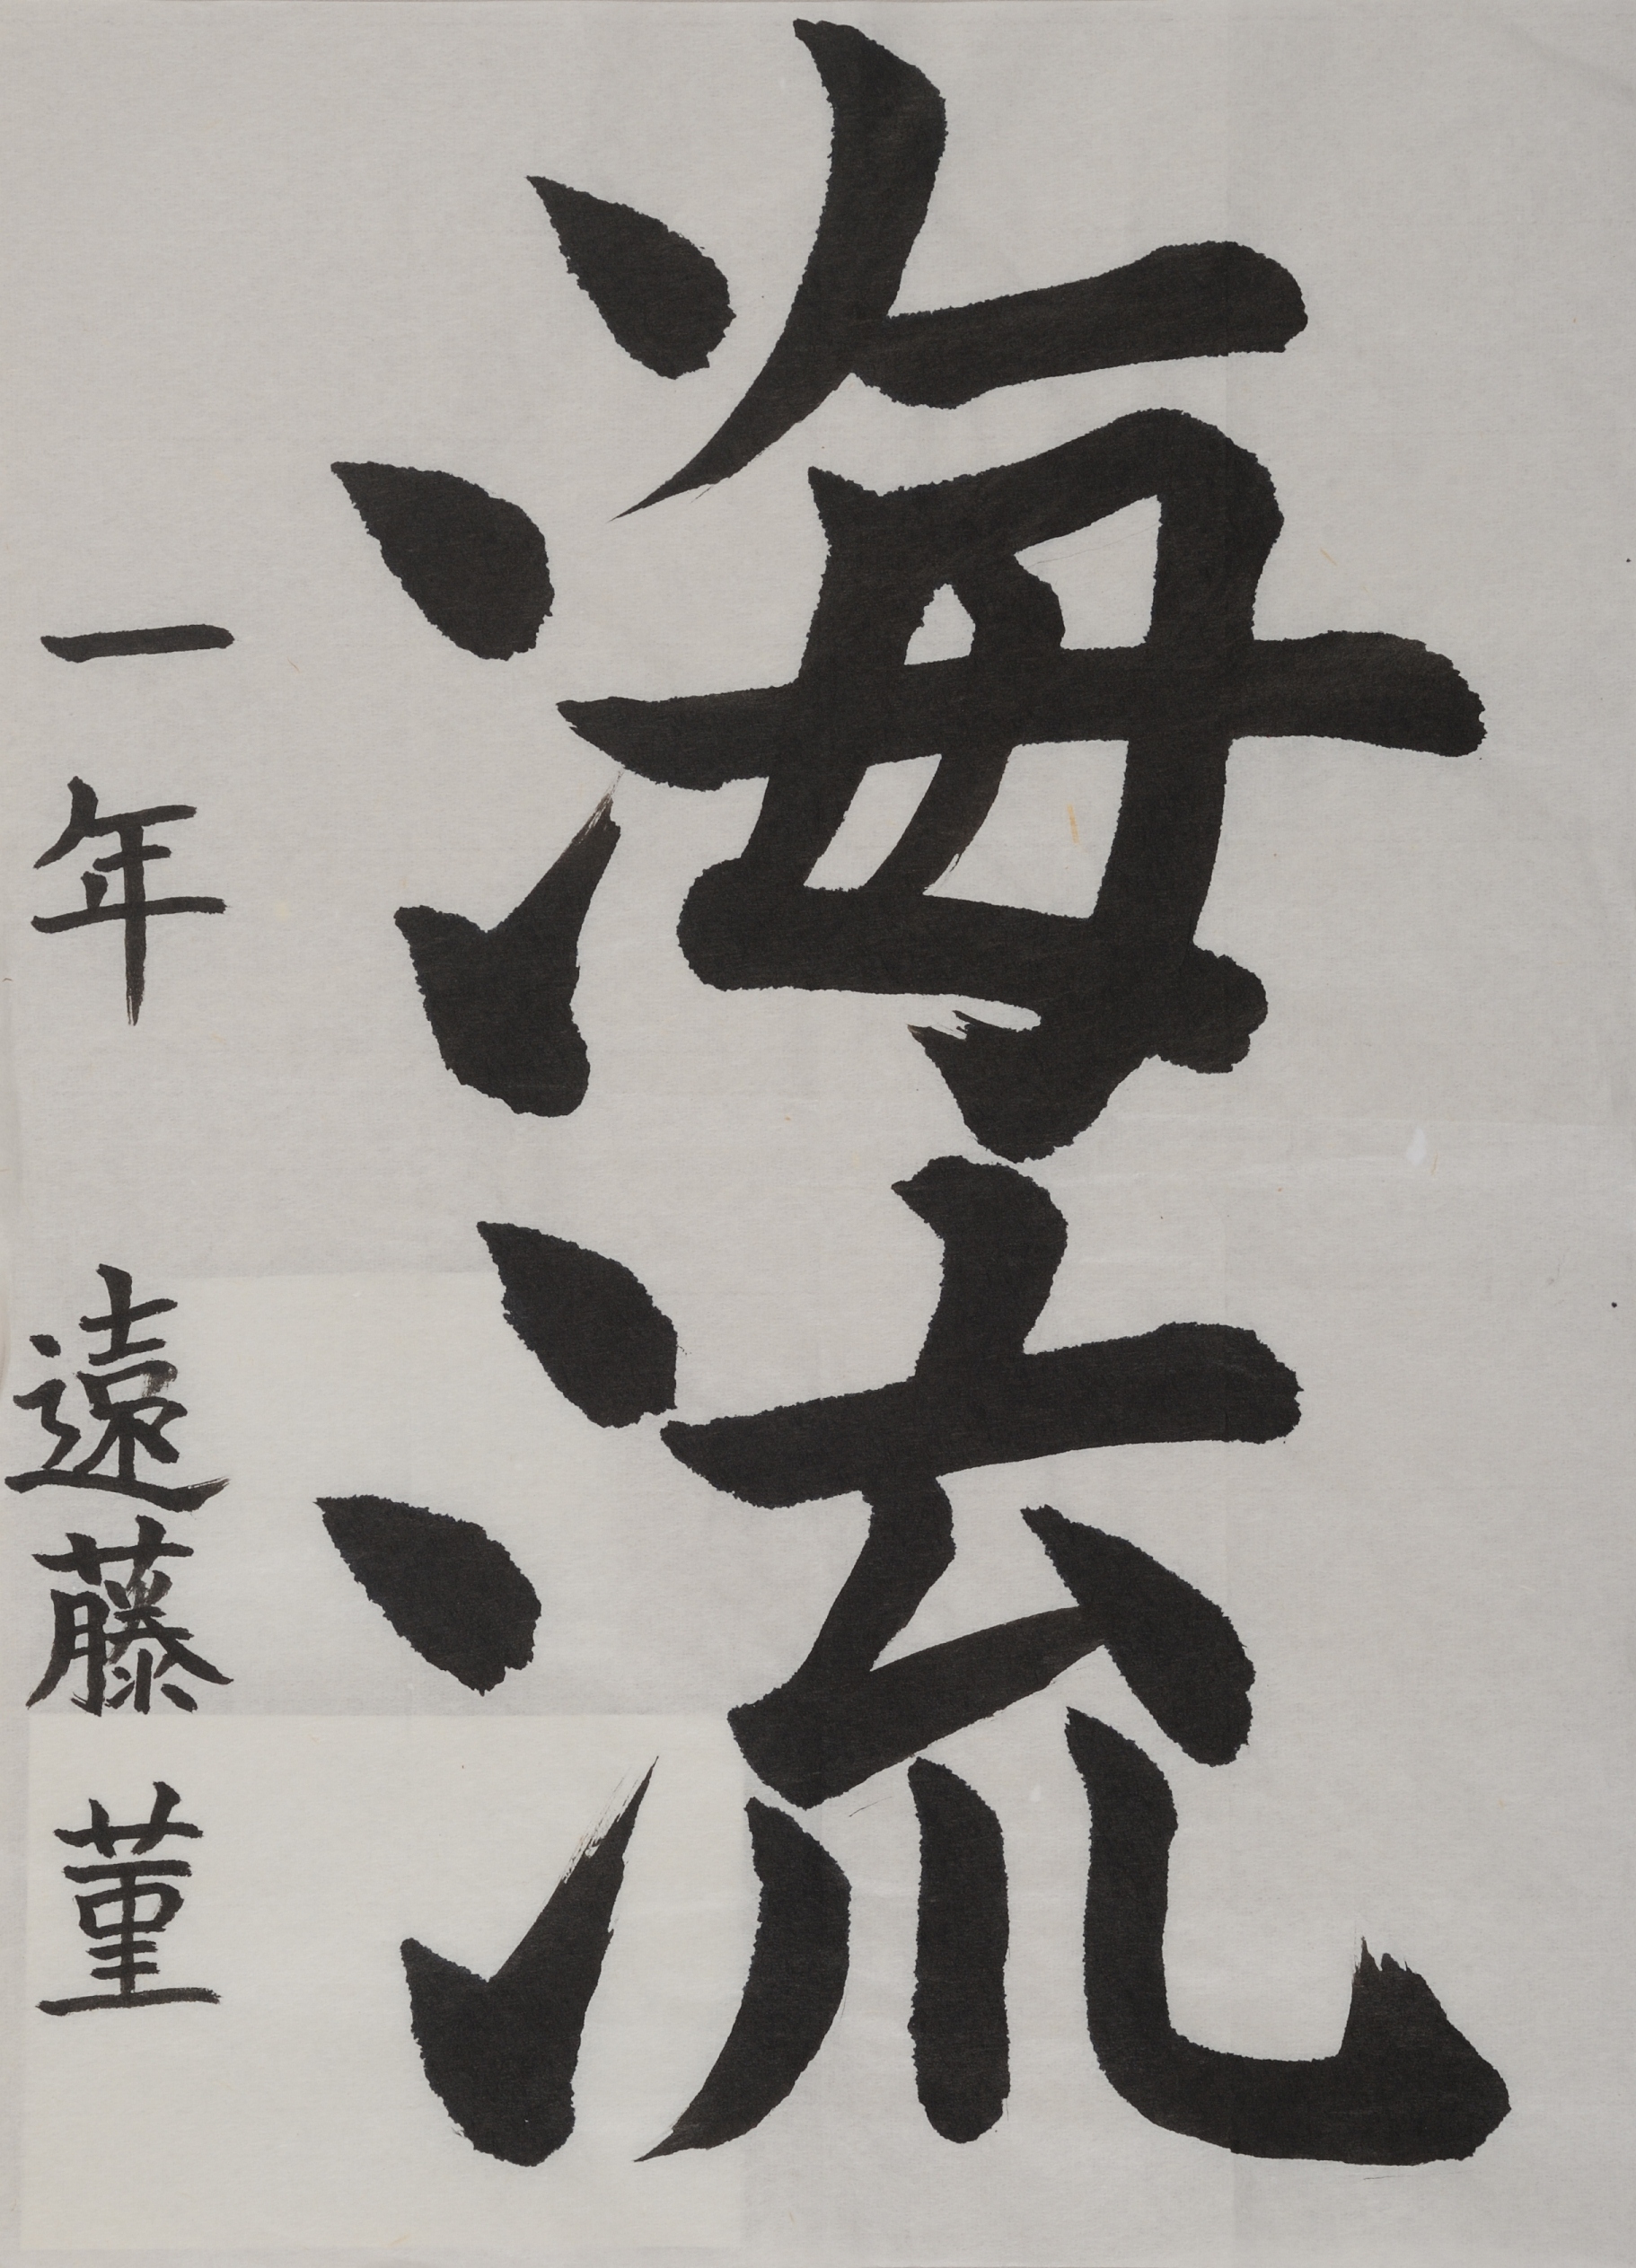 海流
一年 遠藤 菫